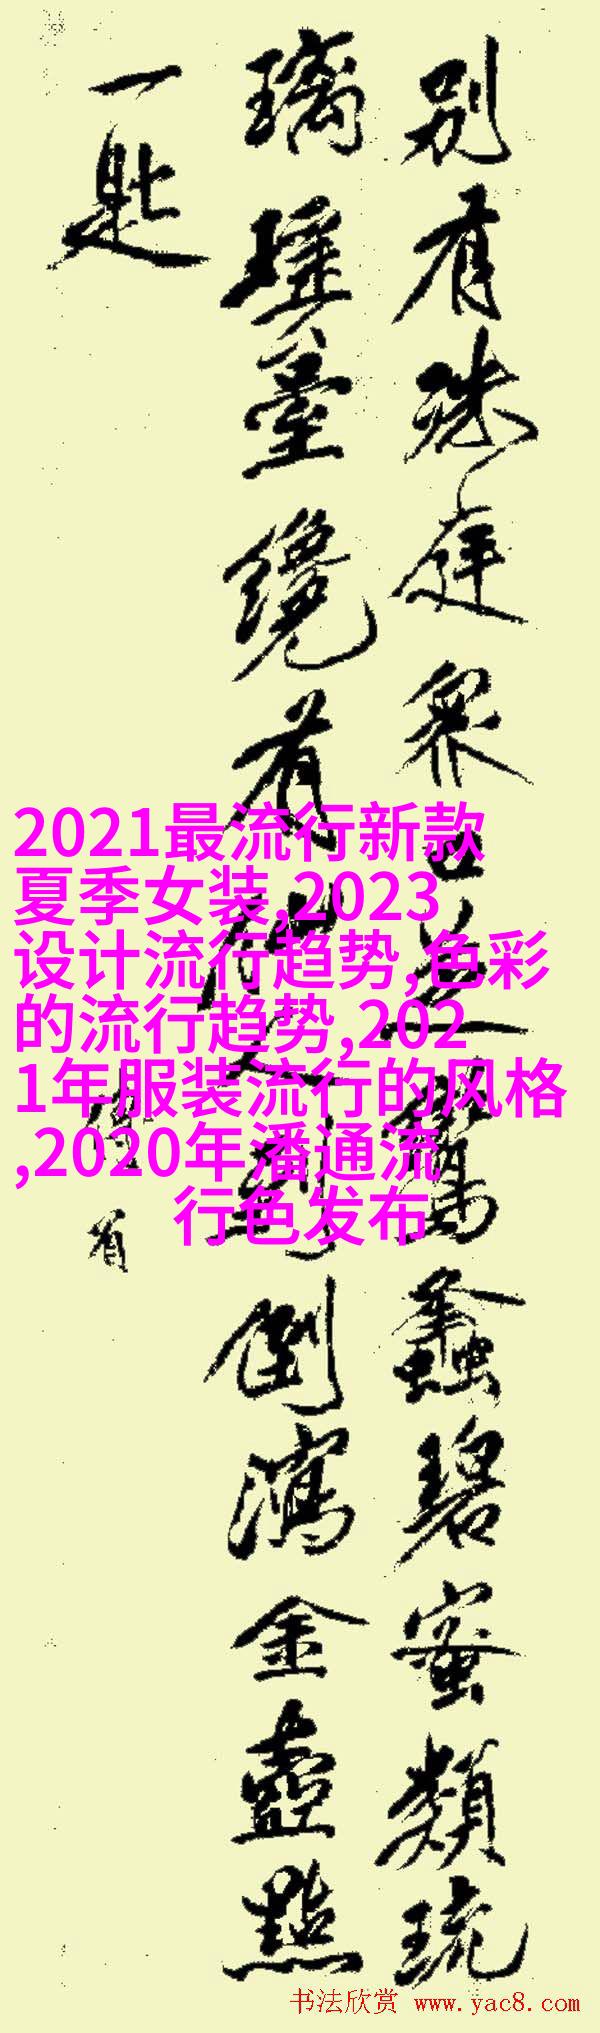 别有殊庭衆口並蠡碧蜜類琉
璃瑤臺纔有仙人到倒瀉金壺點
一匙
2021最流行新款
夏季女装,2023
设计流行趋势,色彩
的流行趋势,202
1年服装流行的风格
,2020年潘通流
行色发布
书法欣赏 www.yac8.com